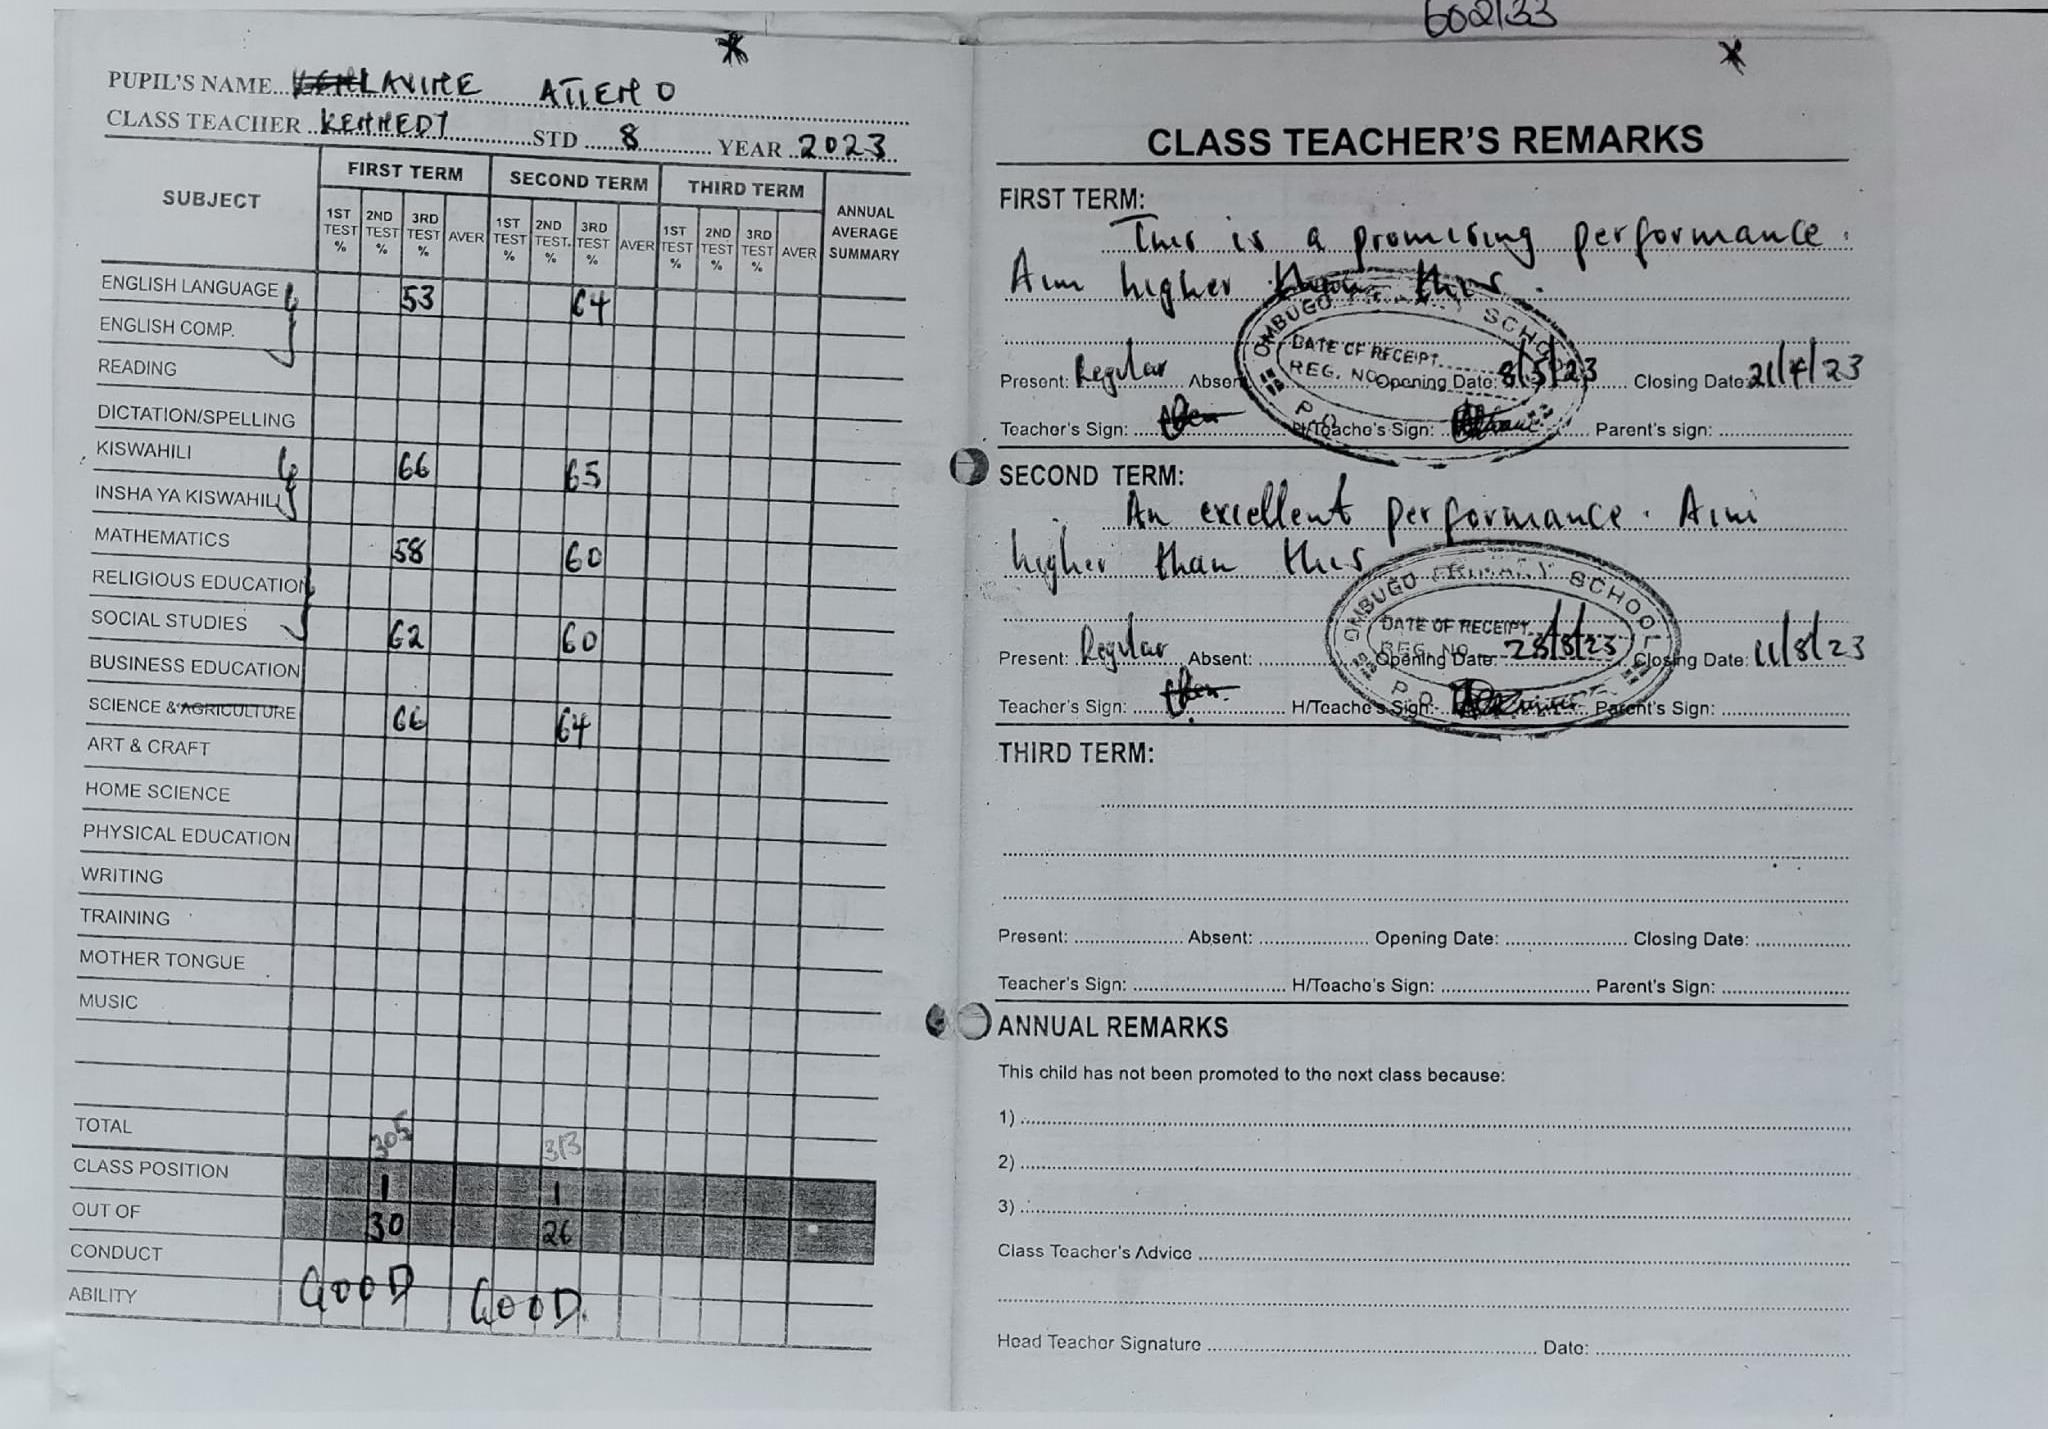 602133
PUPIL'S NAME LAVINE ATIENO
CLASS TEACHER KENNEDY STD 8 YEAR 2023
SUBJECT FIRST TERM SECOND TERM THIRD TERM ANNUAL AVERAGE SUMMARY
1ST TEST % 2ND TEST % 3RD TEST % AVER 1ST TEST % 2ND TEST. % 3RD TEST % AVER 1ST TEST % 2ND TEST % 3RD TEST % AVER
ENGLISH LANGUAGE 53 64
ENGLISH COMP.
READING
DICTATION/SPELLING
KISWAHILI 66 65
INSHA YA KISWAHILI
MATHEMATICS 58 60
RELIGIOUS EDUCATION
SOCIAL STUDIES 62 60
BUSINESS EDUCATION
SCIENCE & AGRICULTURE 66 64
ART & CRAFT
HOME SCIENCE
PHYSICAL EDUCATION
WRITING
TRAINING
MOTHER TONGUE
MUSIC
TOTAL 305 313
CLASS POSITION 1 1
OUT OF 30 26
CONDUCT
ABILITY GOOD GOOD.
CLASS TEACHER'S REMARKS
FIRST TERM:
This is a promising performance.
Aim higher than this.
OMBUGO PRIMARY SCHOOL
DATE OF RECEIPT
REG. NO
P.O.
Present: Regular Absent Opening Date: 8/5/23 Closing Date: 21/4/23
Teacher's Sign: H/Teache's Sign: Parent's sign:
SECOND TERM:
An excellent performance. Aim
higher than this
OMBUGO PRIMARY SCHOOL
DATE OF RECEIPT
REG. NO
P.O.
Present: Regular Absent: Opening Date: 28/8/23 Closing Date: 11/8/23
Teacher's Sign: H/Teache's Sign: Parent's Sign:
THIRD TERM:
Present: Absent: Opening Date: Closing Date:
Teacher's Sign: H/Teache's Sign: Parent's Sign:
ANNUAL REMARKS
This child has not been promoted to the next class because:
1)
2)
3)
Class Teacher's Advice
Head Teacher Signature Date: